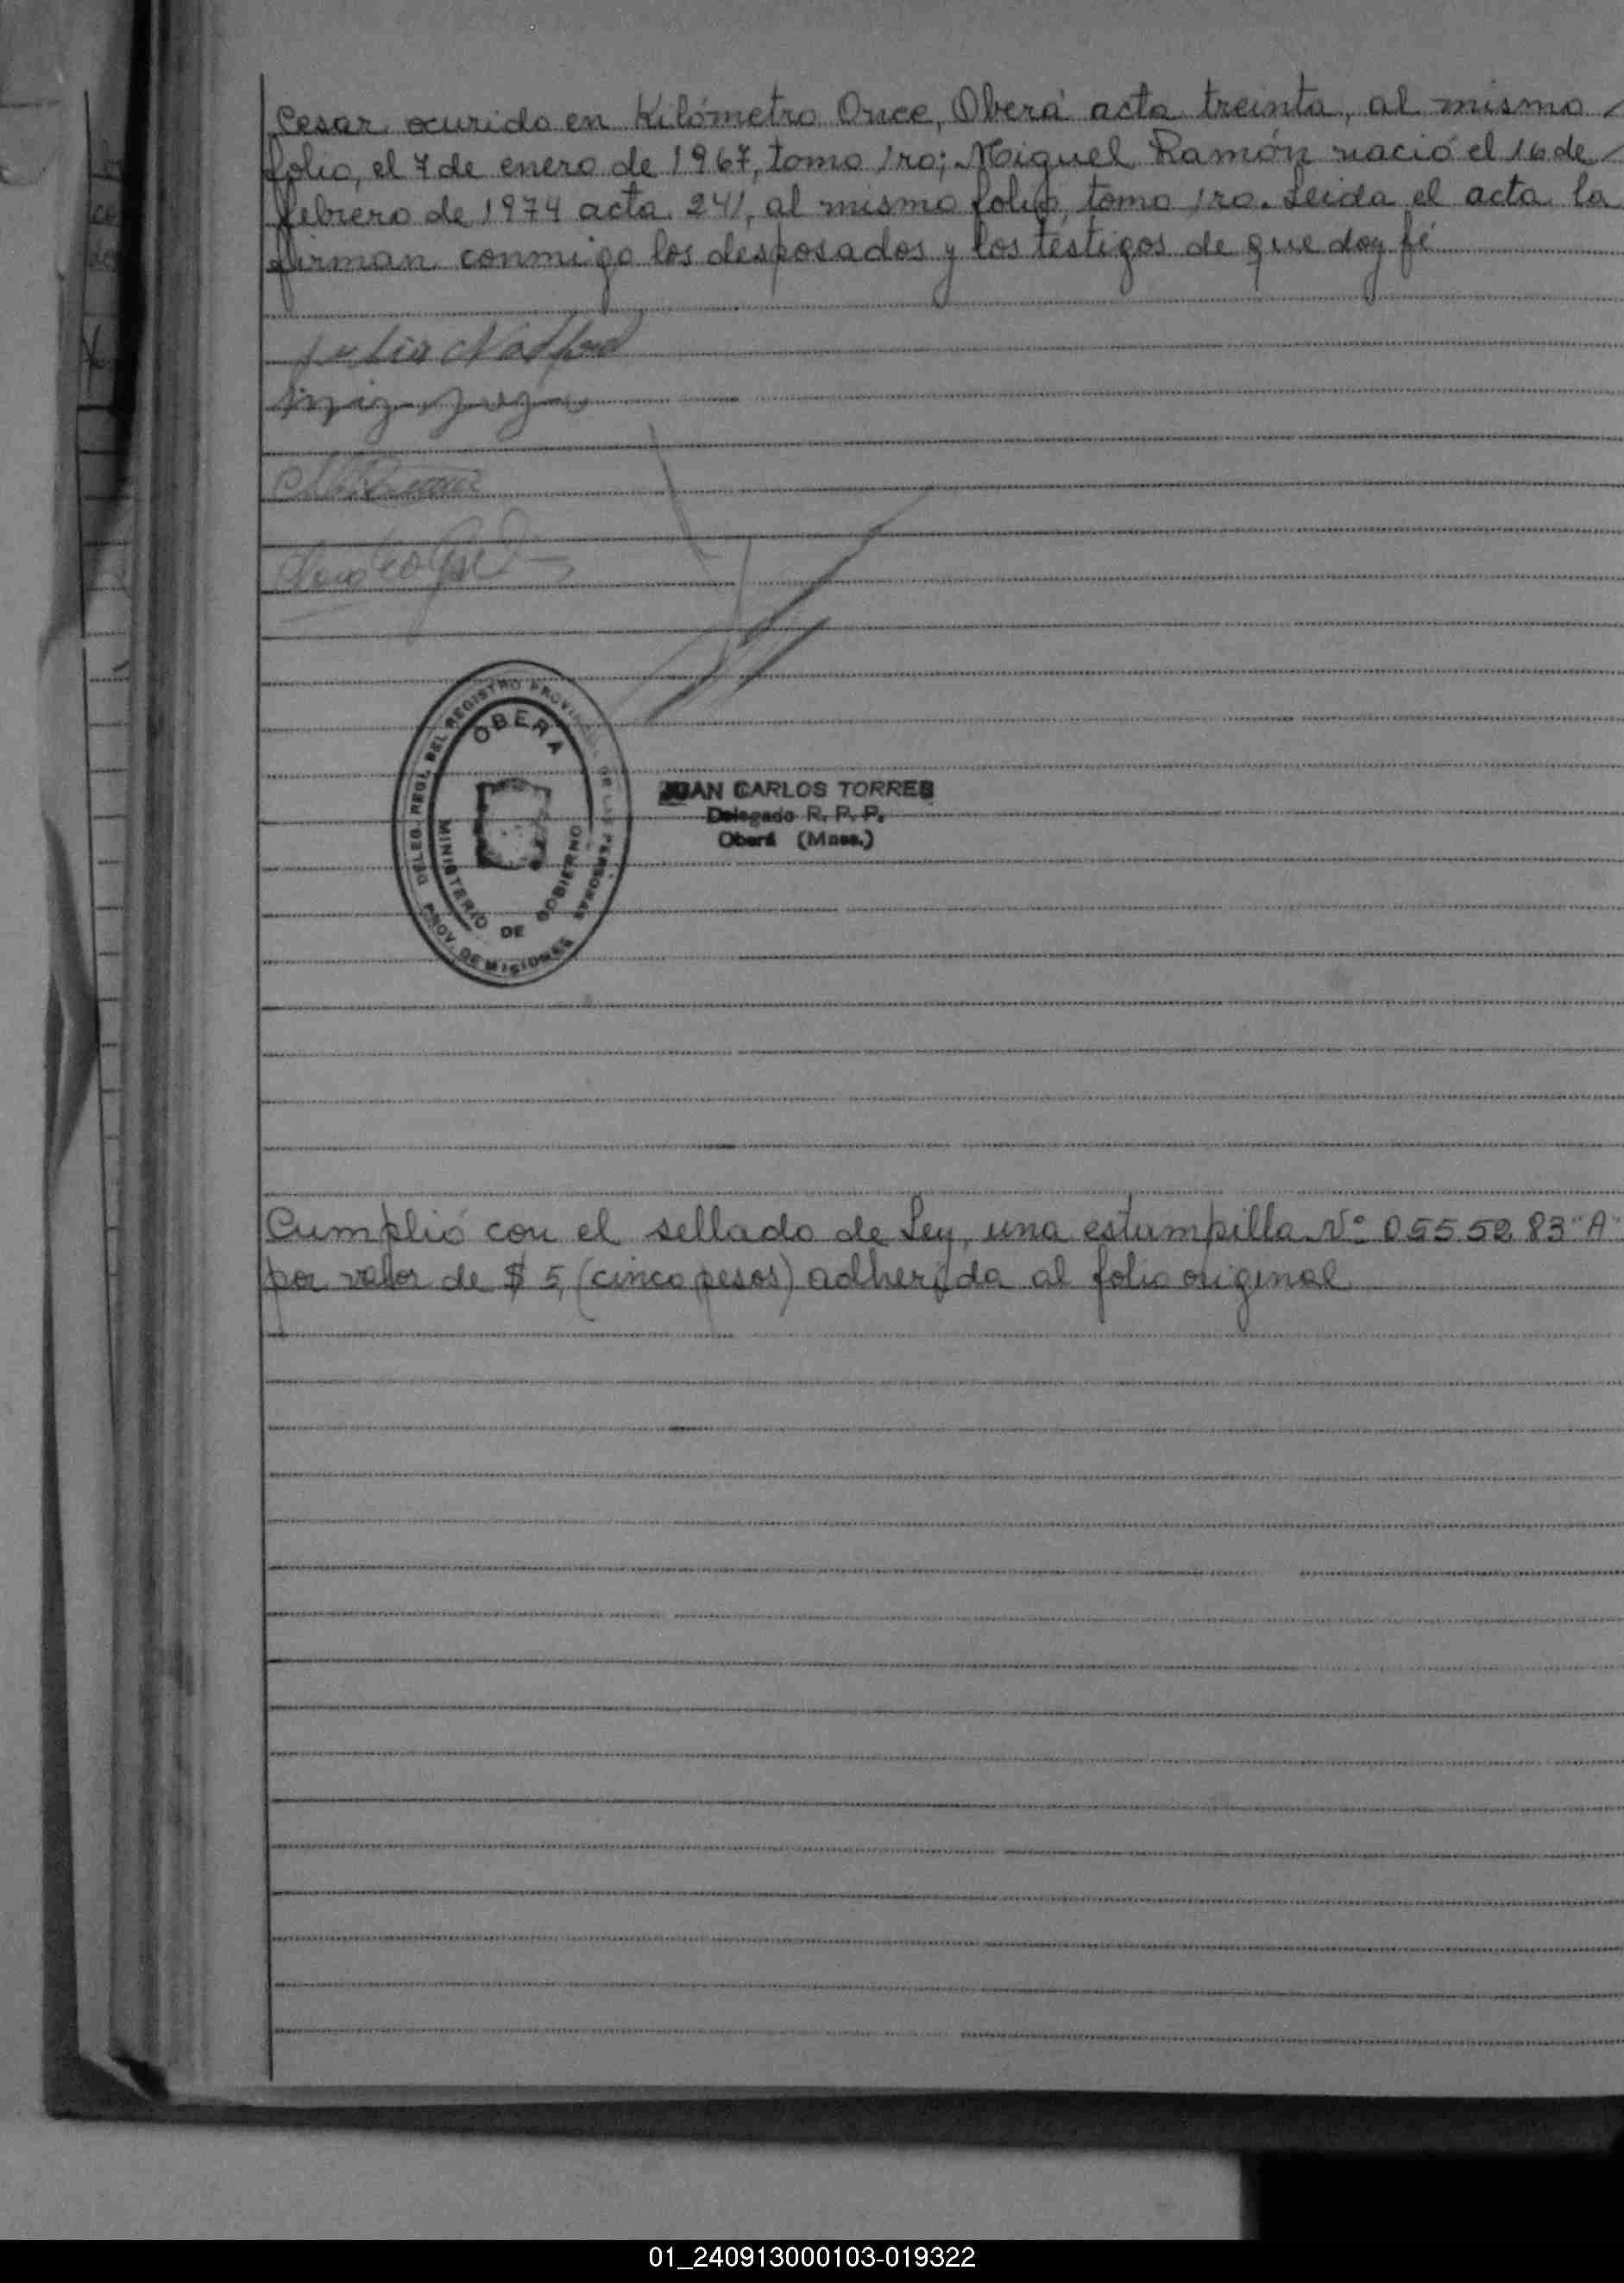 Cesar ocurido en Kilómetro Once, Oberá acta treinta, al mismo
folio, el 7 de enero de 1967, tomo 1ro; Miguel Ramón nació el 16 de
febrero de 1974 acta 241, al mismo folio, tomo 1ro. Leida el acta la
firman conmigo los desposados y los testigos de que doy fé
DELEG. REGI. DEL REGISTRO PROVINCIAL DE LAS PERSONAS
OBERA
MINISTERIO DE GOBIERNO
PROV. DE MISIONES
JUAN CARLOS TORRES
Delegado R. P. P.
Oberá (Mnes.)
Cumplió con el sellado de Ley, una estampilla Nº 0555283 "A"
por valor de $ 5, (cinco pesos) adherida al folio original
01_240913000103-019322